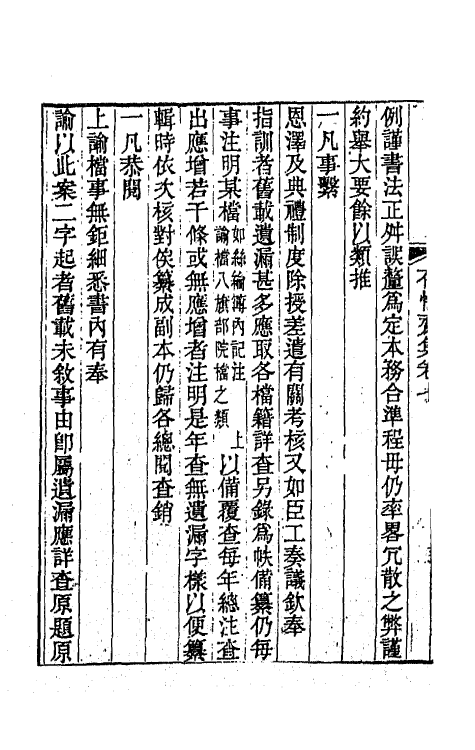 例謹書法正舛誤釐爲定本務合準程毋仍率畧冗散之弊謹
約舉大要餘以類推
一凡事繫
恩澤及典禮制度除授差遣有關考核又如臣工奏議欽奉
指訓者舊載遺漏甚多應取各檔籍詳查另錄爲帙備纂仍每
事注明某檔如絲綸簿內記注上諭檔八旗部院檔之類以備覆查每年總注查
出應增若干條或無應增者注明是年查無遺漏字樣以便纂
輯時依次核對俟纂成副本仍歸各總閱查銷
一凡恭閱
上諭檔事無鉅細悉書內有奉
諭以此案二字起者舊載未敘事由卽屬遺漏應詳查原題原